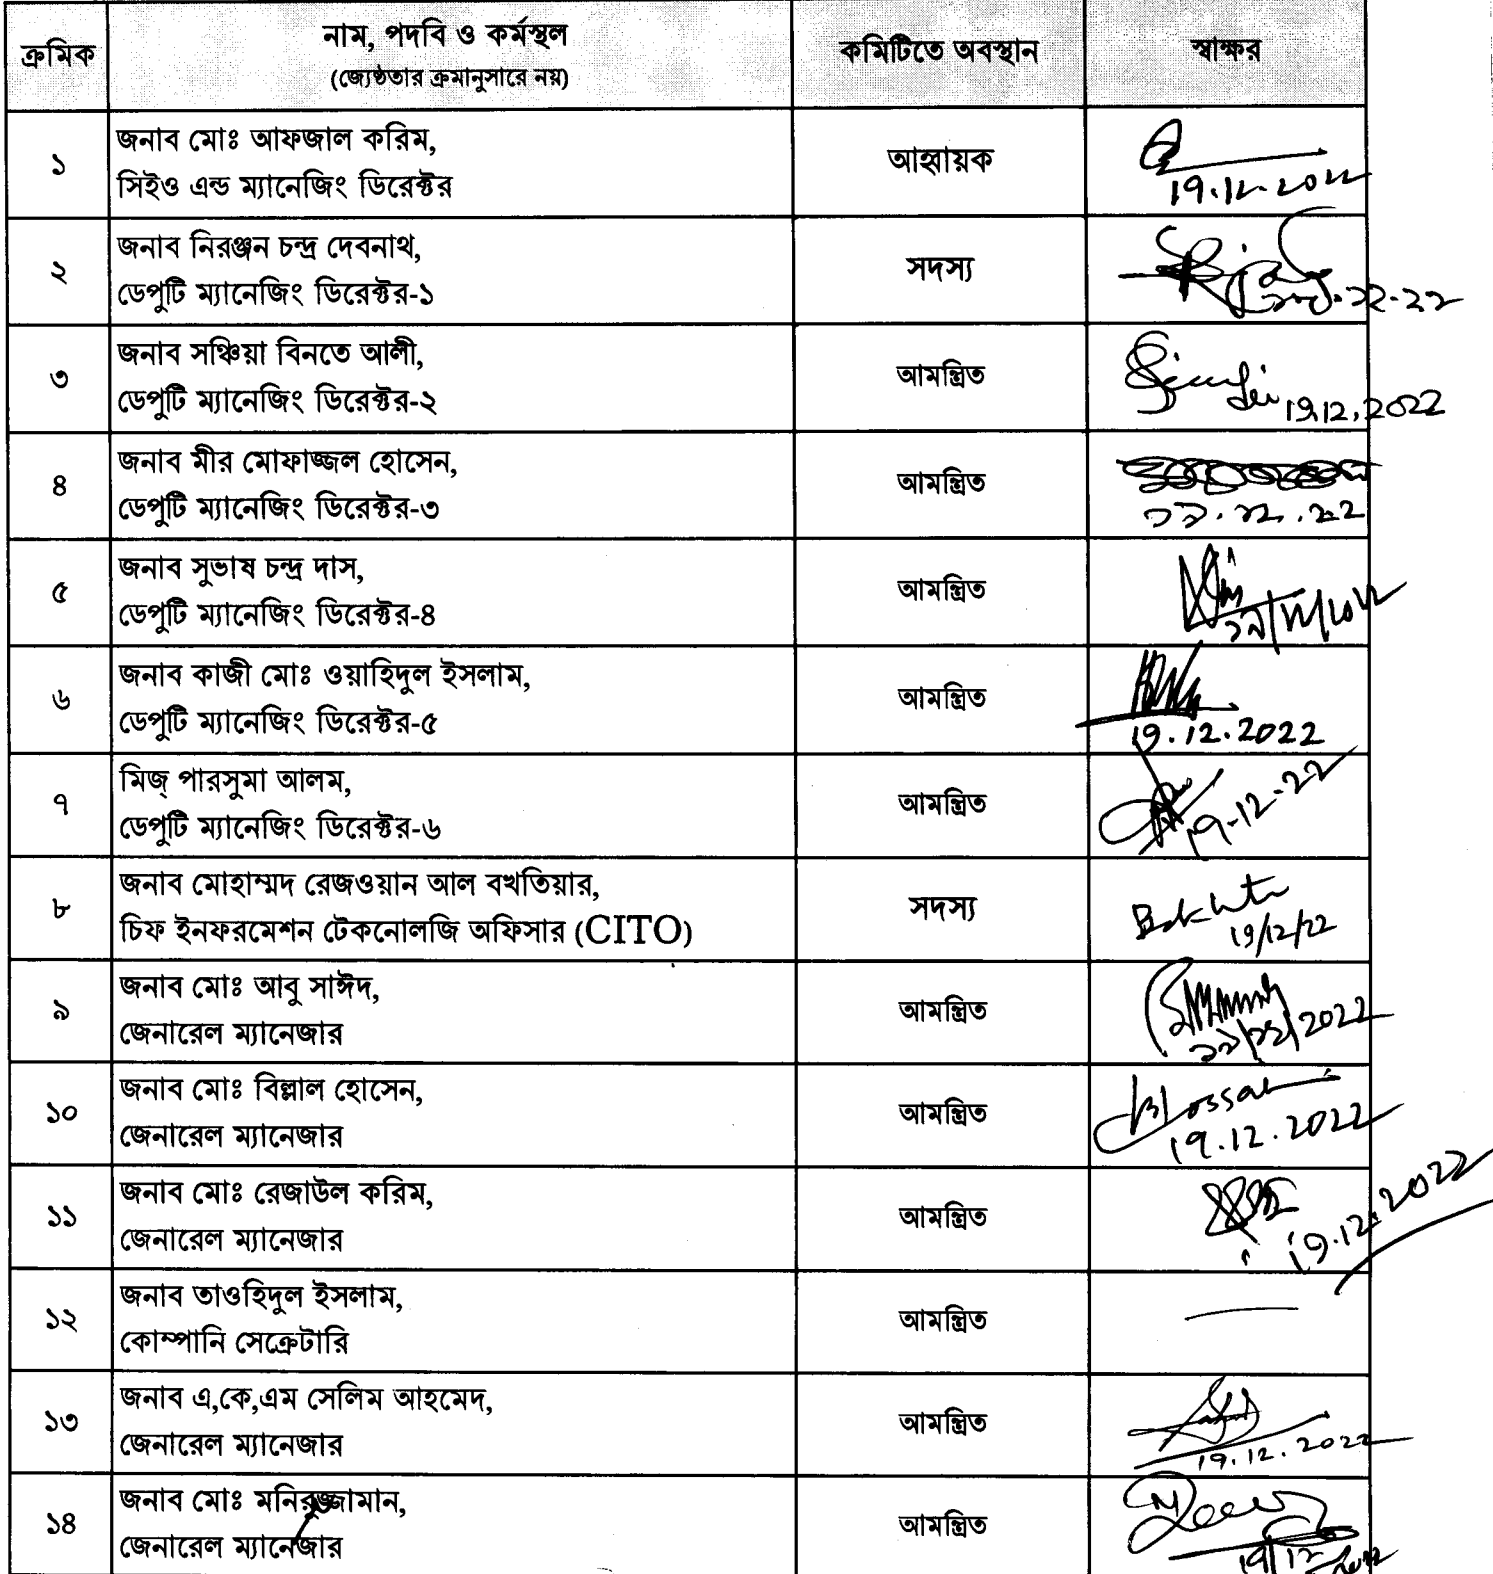 ক্রমিক
নাম, পদবি ও কর্মস্থল
(জ্যেষ্ঠতার ক্রমানুসারে নয়)
কমিটিতে অবস্থান
স্বাক্ষর
১
জনাব মোঃ আফজাল করিম,
সিইও এন্ড ম্যানেজিং ডিরেক্টর
আহ্বায়ক
19.12.2022
২
জনাব নিরঞ্জন চন্দ্র দেবনাথ,
ডেপুটি ম্যানেজিং ডিরেক্টর-১
সদস্য
৩
জনাব সঞ্চিয়া বিনতে আলী,
ডেপুটি ম্যানেজিং ডিরেক্টর-২
আমন্ত্রিত
19.12.2022
৪
জনাব মীর মোফাজ্জল হোসেন,
ডেপুটি ম্যানেজিং ডিরেক্টর-৩
আমন্ত্রিত
১৯.১২.২২
৫
জনাব সুভাষ চন্দ্র দাস,
ডেপুটি ম্যানেজিং ডিরেক্টর-৪
আমন্ত্রিত
৬
জনাব কাজী মোঃ ওয়াহিদুল ইসলাম,
ডেপুটি ম্যানেজিং ডিরেক্টর-৫
আমন্ত্রিত
19.12.2022
৭
মিজ্ পারসুমা আলম,
ডেপুটি ম্যানেজিং ডিরেক্টর-৬
আমন্ত্রিত
19-12-22
৮
জনাব মোহাম্মদ রেজওয়ান আল বখতিয়ার,
চিফ ইনফরমেশন টেকনোলজি অফিসার (CITO)
সদস্য
19/12/22
৯
জনাব মোঃ আবু সাঈদ,
জেনারেল ম্যানেজার
আমন্ত্রিত
১৯/১২/2022
১০
জনাব মোঃ বিল্লাল হোসেন,
জেনারেল ম্যানেজার
আমন্ত্রিত
19.12.2022
১১
জনাব মোঃ রেজাউল করিম,
জেনারেল ম্যানেজার
আমন্ত্রিত
19.12.2022
১২
জনাব তাওহিদুল ইসলাম,
কোম্পানি সেক্রেটারি
আমন্ত্রিত
১৩
জনাব এ,কে,এম সেলিম আহমেদ,
জেনারেল ম্যানেজার
আমন্ত্রিত
19.12.2022
১৪
জনাব মোঃ মনিরুজ্জামান,
জেনারেল ম্যানেজার
আমন্ত্রিত
19/12/2022